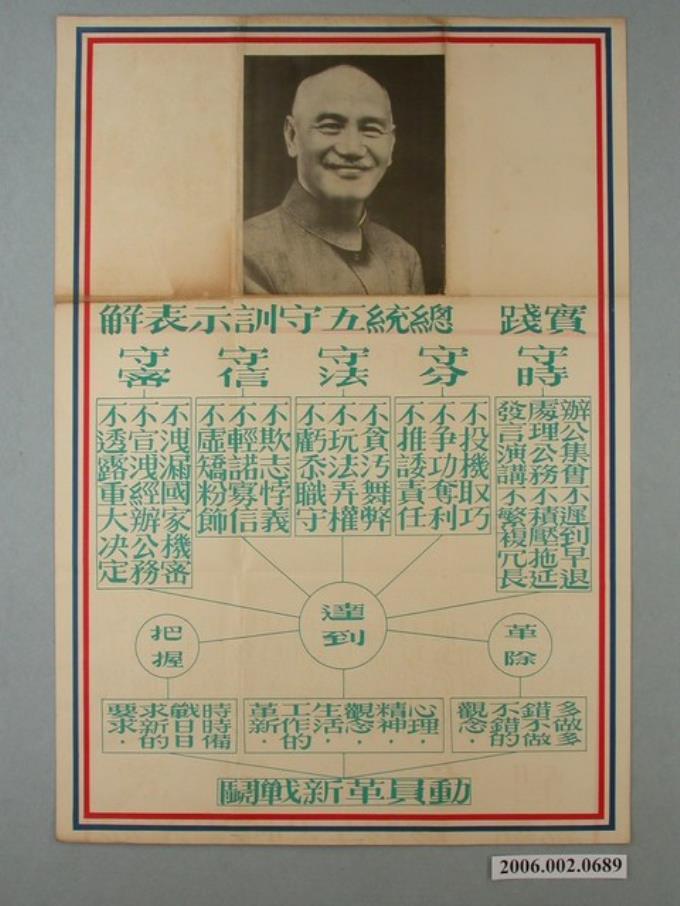 實踐 總統五守訓示表解
守時
辦公集會不遲到早退
處理公務不積壓拖延
發言演講不繁複冗長
守分
不投機取巧
不爭功奪利
不推諉責任
守法
不貪污舞弊
不玩法弄權
不虧忝職守
守信
不欺志悖義
不輕諾寡信
不虛矯粉飾
守密
不洩漏國家機密
不宣洩經辦公務
不透露重大決定
達到
革除
把握
多做多
錯不做
不錯的
觀念．
心理．
精神．
觀念．
生活．
工作的
革新．
時時備
戰日日
求新的
要求．
動員革新戰鬪
2006.002.0689